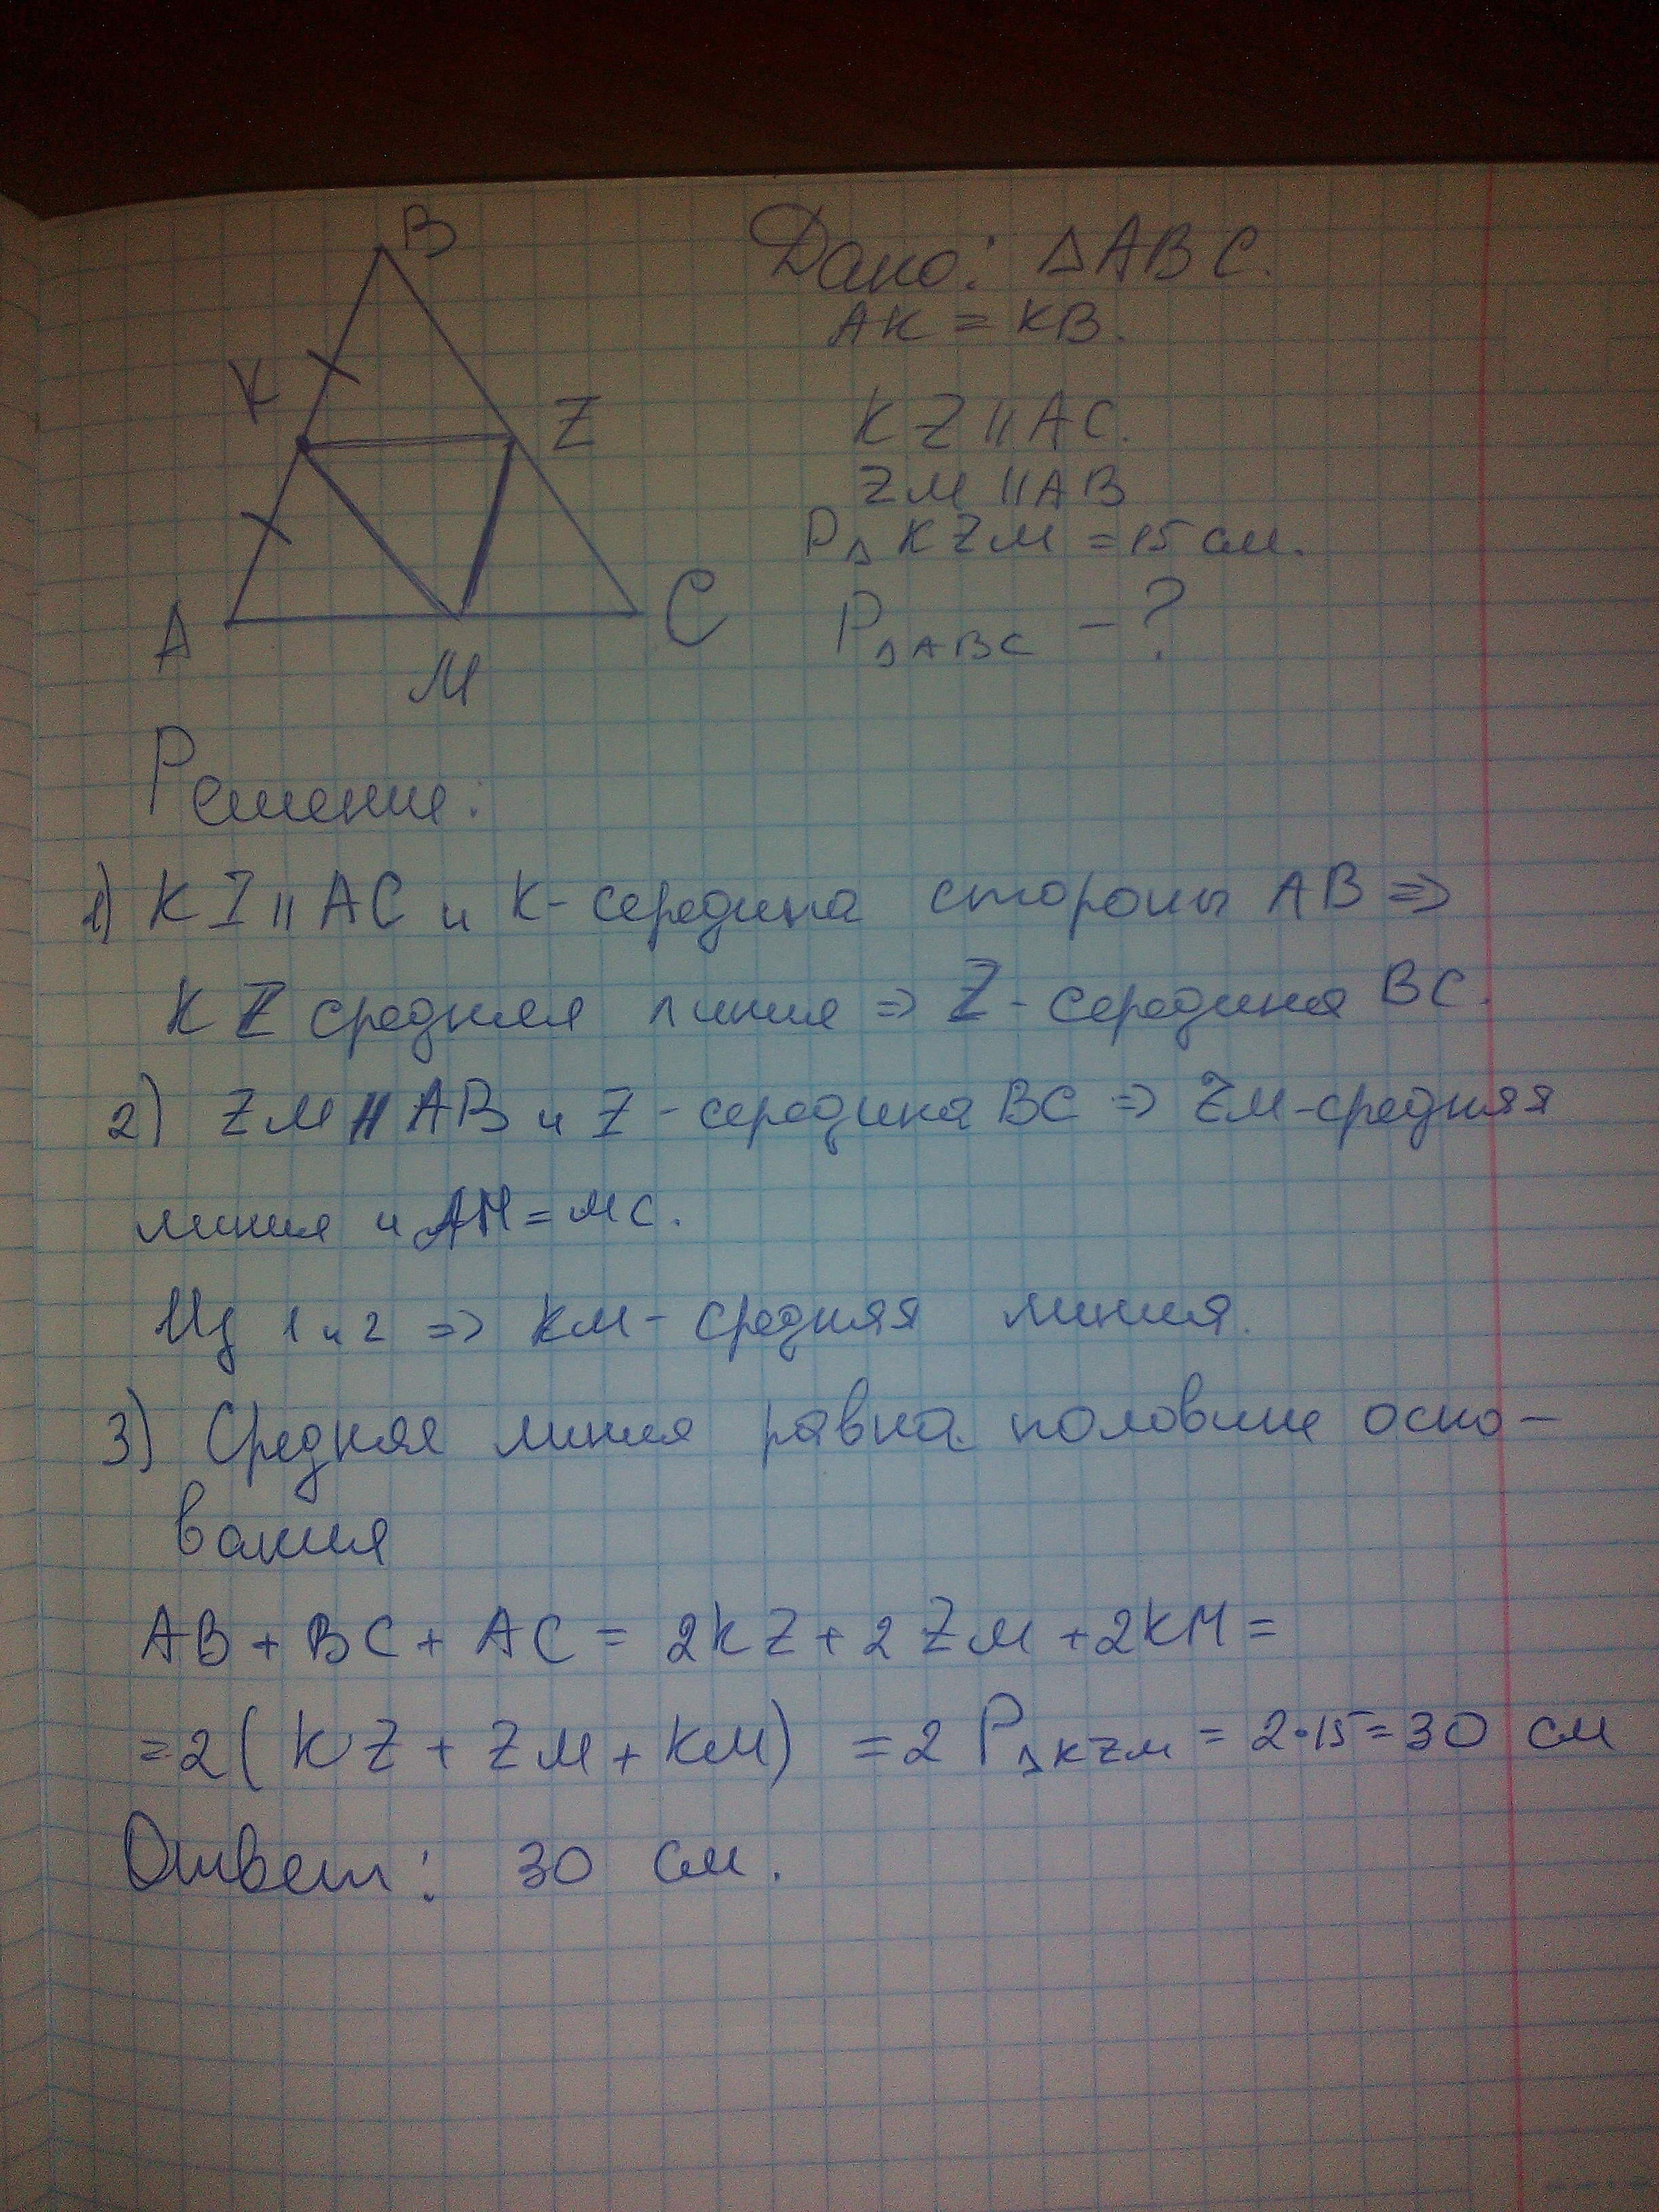 B
K
Z
A
M
C
Дано: △ABC.
AK = KB.
KZ || AC.
ZM || AB
P△KZM = 15 см.
P△ABC - ?
Решение:
1) KZ || AC и K- середина стороны AB ⇒
KZ средняя линия ⇒ Z - середина BC.
2) ZM || AB и Z - середина BC ⇒ ZM - средняя
линия и AM = MC.
Из 1 и 2 ⇒ KM - средняя линия.
3) Средняя линия равна половине осно-
вания
AB + BC + AC = 2KZ + 2ZM + 2KM =
= 2(KZ + ZM + KM) = 2P△KZM = 2·15 = 30 см
Ответ: 30 см.